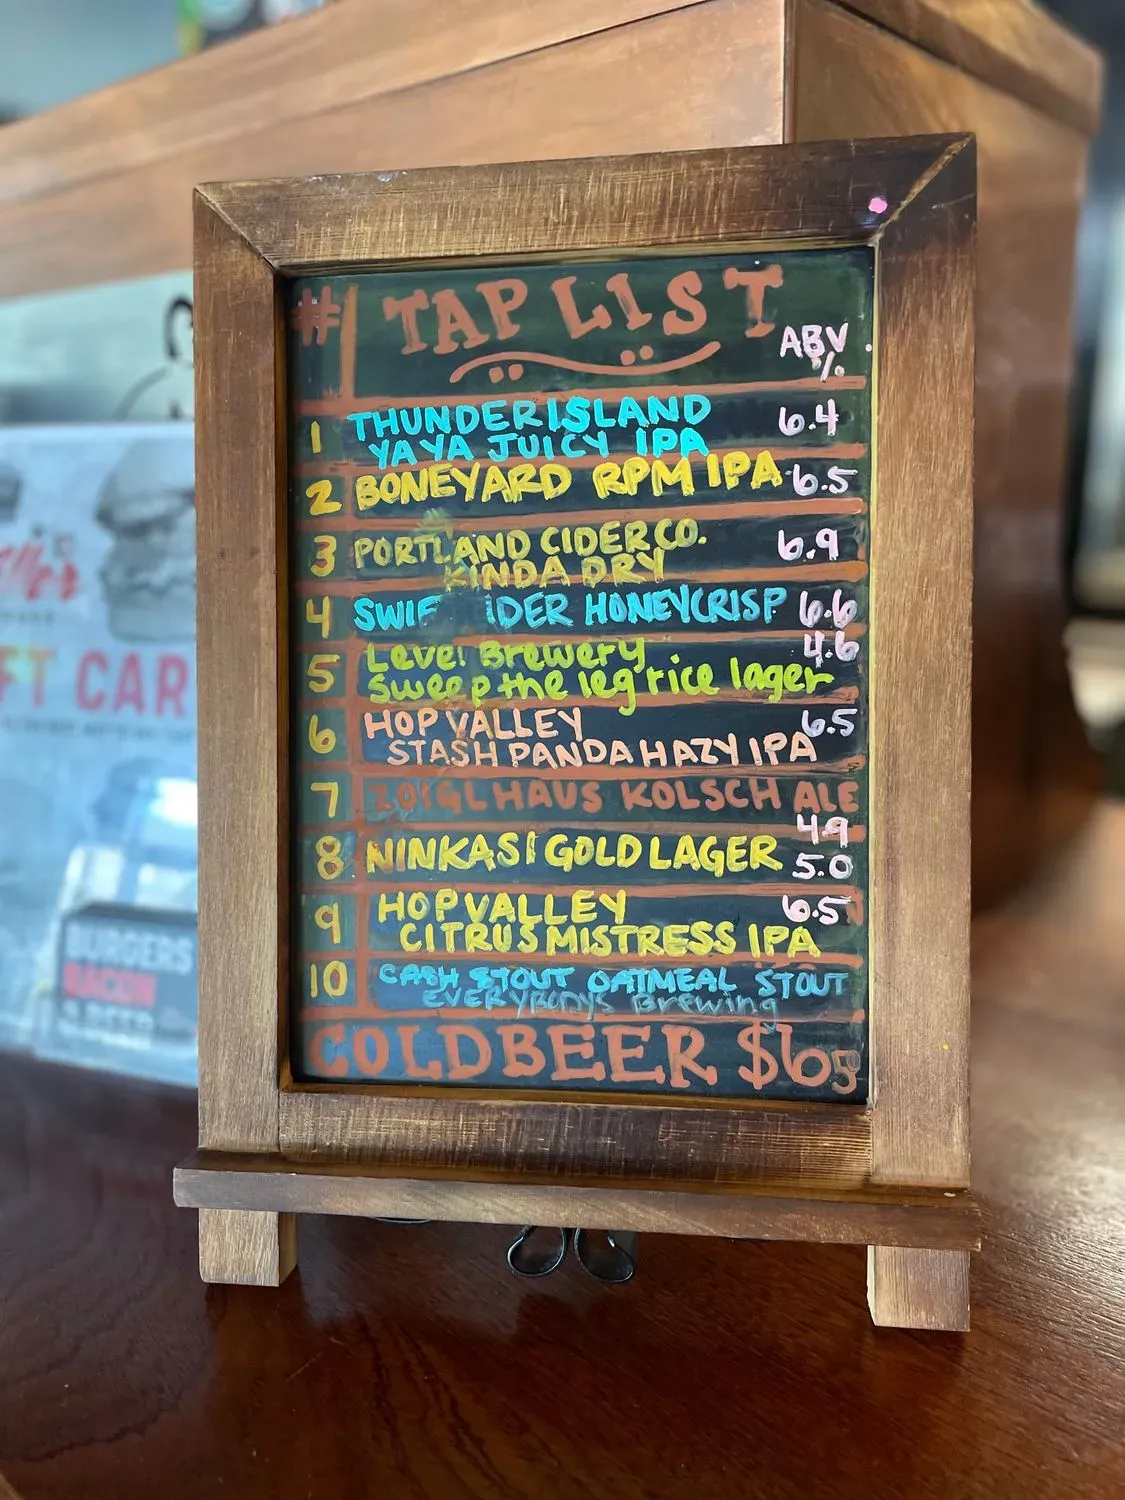 # TAP LIST
ABV
%
1 THUNDER ISLAND 6.4
YA YA JUICY IPA
2 BONEYARD RPM IPA 6.5
3 PORTLAND CIDER CO. 6.9
KINDA DRY
4 HONEYCRISP 6.6
5 Level Brewery 4.6
Sweep the leg rice lager
6 HOP VALLEY 6.5
STASH PANDA HAZY IPA
7 ZOIGLHAUS KOLSCH ALE
4.9
8 NINKASI GOLD LAGER 5.0
9 HOP VALLEY 6.5
CITRUS MISTRESS IPA
10 CASH STOUT OATMEAL STOUT
EVERYBODYS Brewing
COLD BEER $6
FT CAR
BURGERS
BACON
& BEER